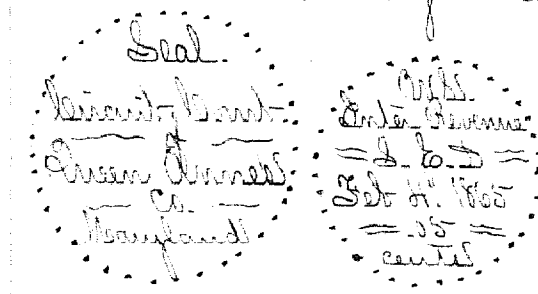 Seal.
Circuit Court
Queen Annes
Co.
Maryland
U.S.
Inter. Revenue
S. E. D
Feb 4". 1865
.05
cents